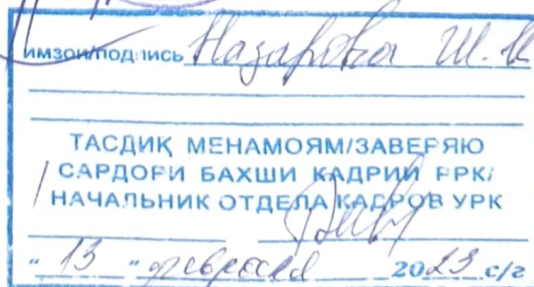 ИМЗОИ/ПОДПИСЬ Назарова Ш.К
ТАСДИҚ МЕНАМОЯМ/ЗАВЕРЯЮ
САРДОРИ БАХШИ КАДРИИ РРК/
НАЧАЛЬНИК ОТДЕЛА КАДРОВ УРК
" 13 " февраля 2023 с/г